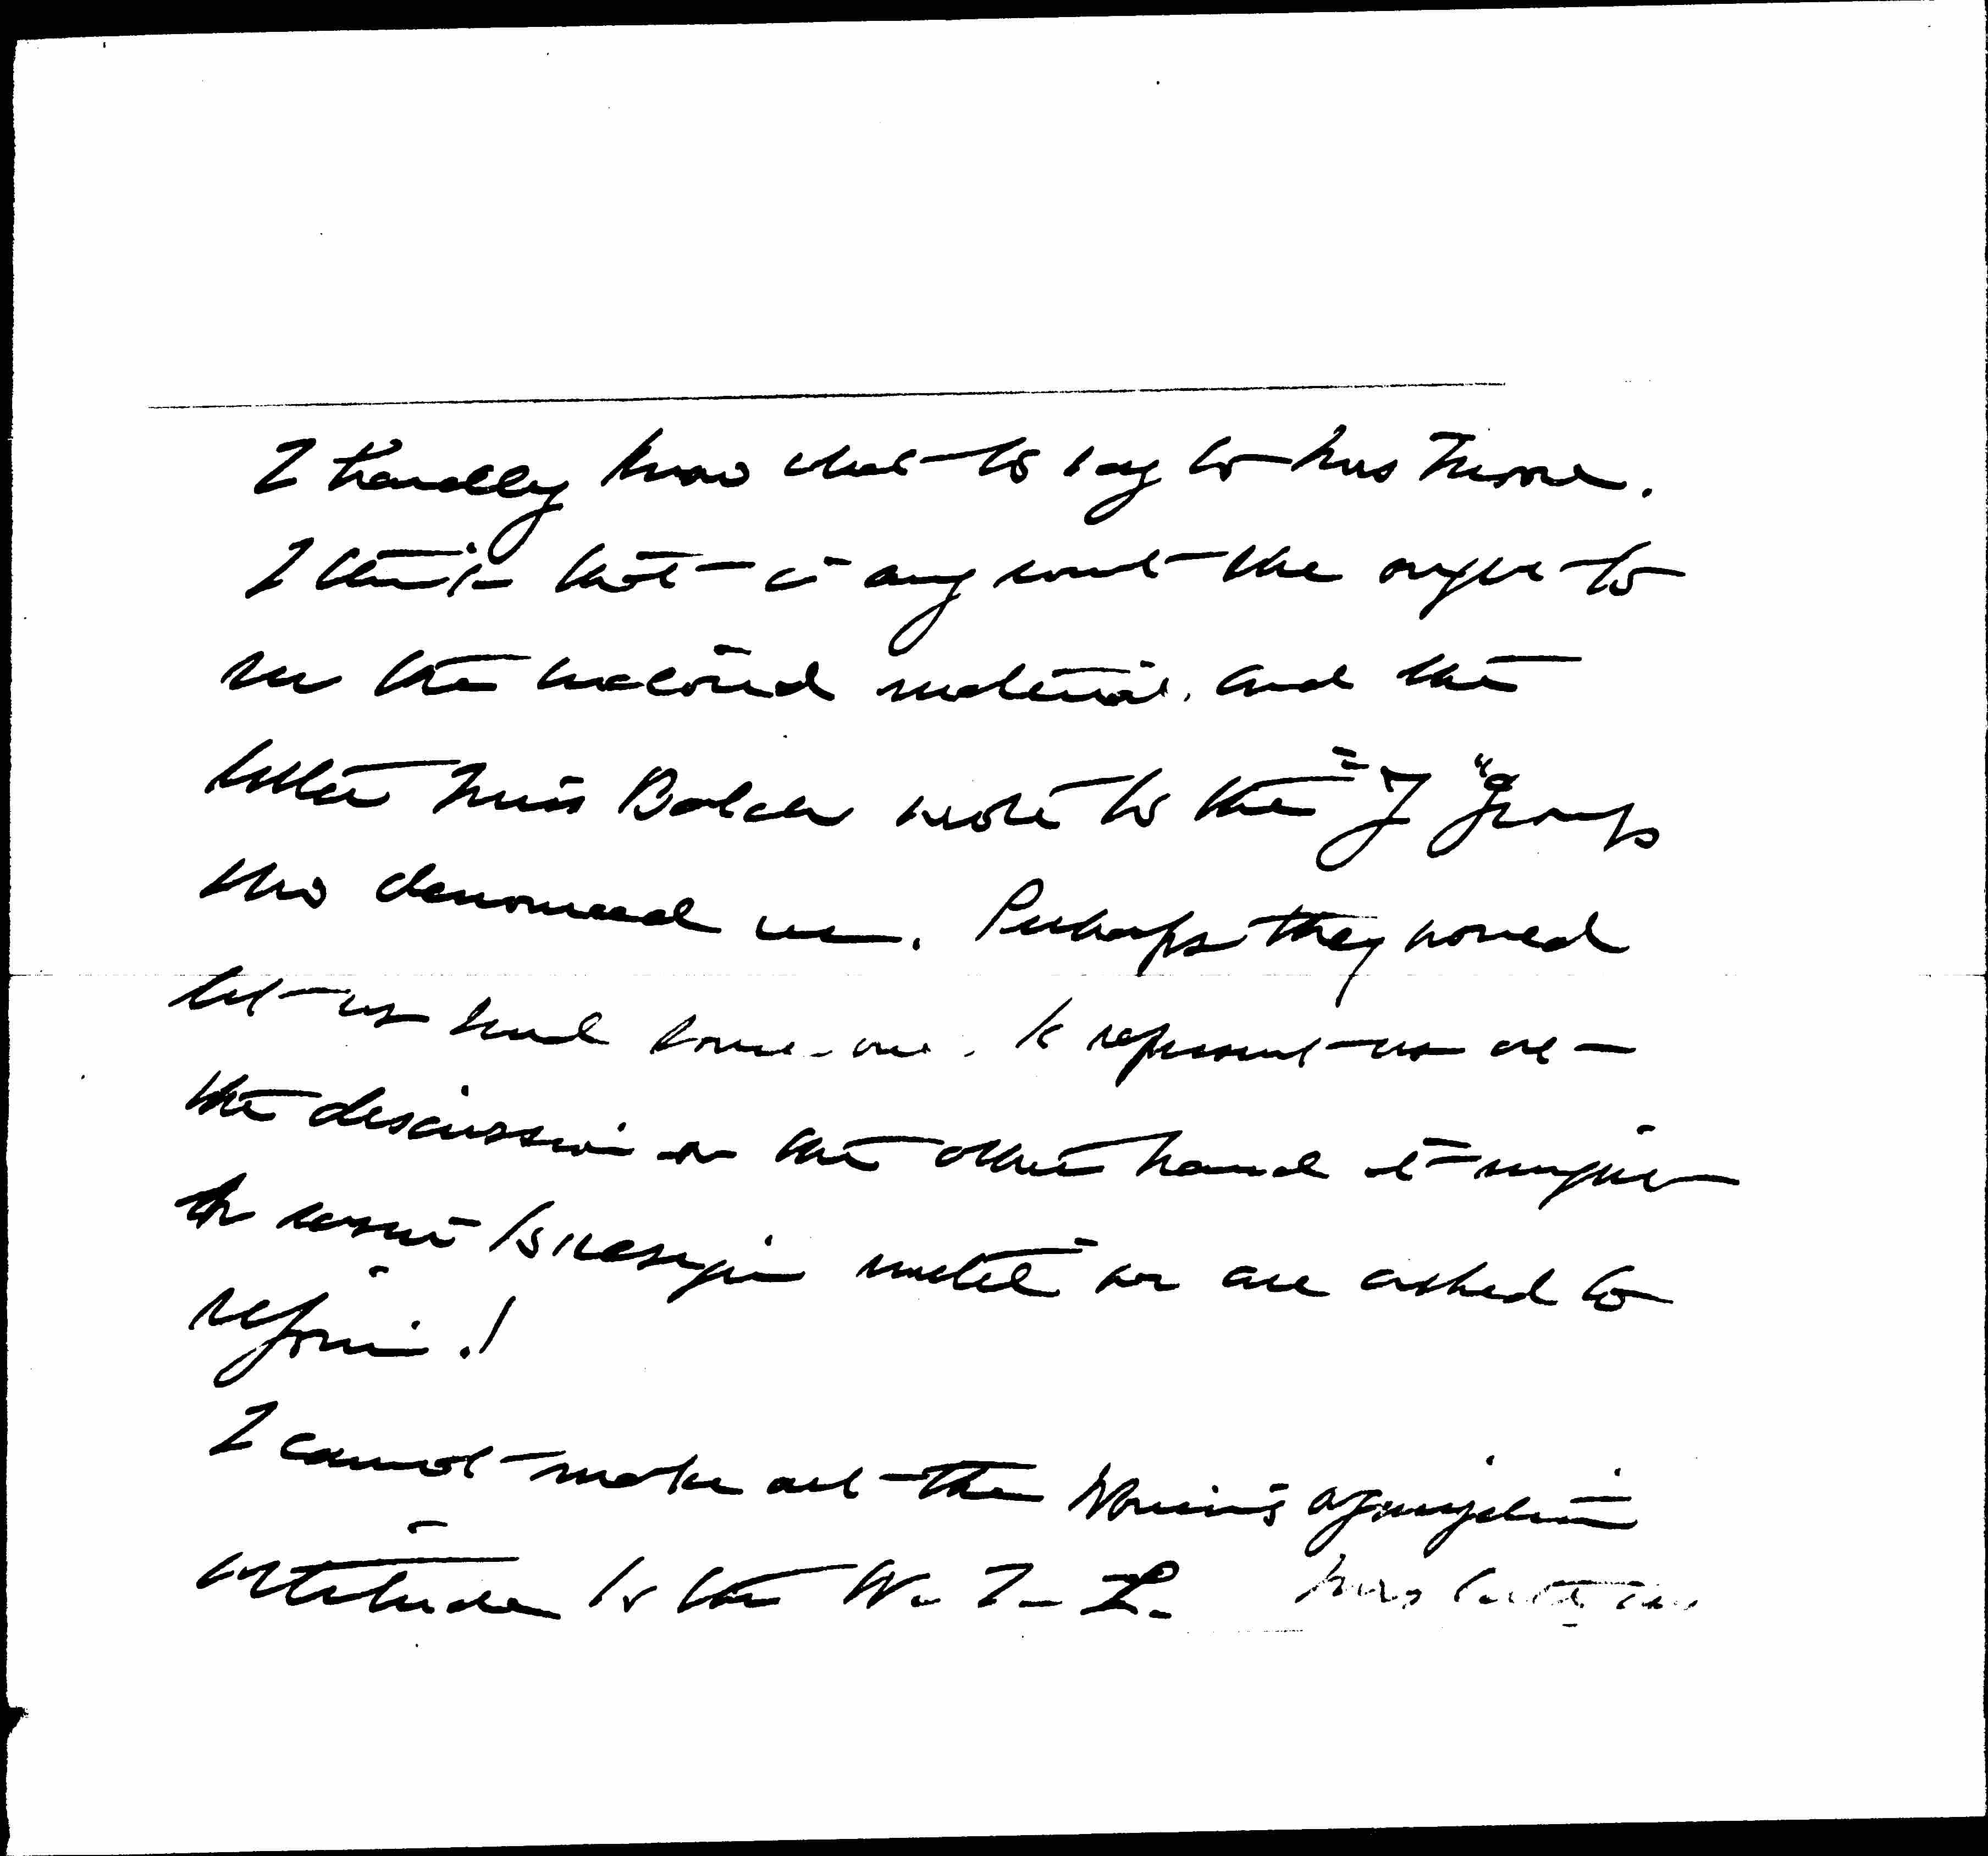 I hardly know what to say to Mrs Moore.
I think that in any event she ought to
see the enclosed material, and the
letter Miss Balch wrote to the "J" group
who denounced us. Perhaps they would
let us send some-one to represent us at
the discussion on the other hand it might
be wiser to resign until we are asked to
rejoin!
I cannot make out the Women's organizations
attitude to the W. I. L.